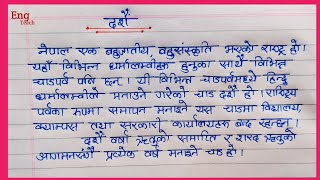 Eng
Teach
दशैं
नेपाल एक बहुजातीय, बहुसंस्कृति भएको राष्ट्र हो।
यहाँ विभिन्न धर्मालम्बीहरू हुनुका साथै विभिन्न
चाडपर्व पनि छन्। यी विभिन्न चाडपर्वमध्ये हिन्दु
धर्मालम्बीले मनाउने गरेको चाड दशैं हो। राष्ट्रिय
पर्वका रूपमा समापन मनाइने यस चाडमा विद्यालय,
क्याम्पस तथा सरकारी कार्यालयहरू बन्द रहन्छन्।
दशैं वर्षा ऋतुको समाप्ति र शरद ऋतुको
आगमनसँगै प्रत्येक वर्ष मनाइने चाड हो।